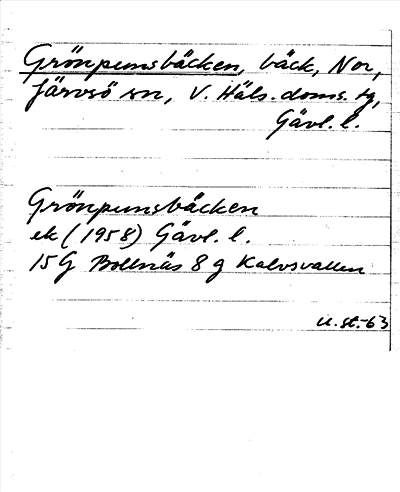 Grönpunsbäcken, bäck, Nor,
Järvsö sn, V. Häls. doms. tg,
Gävl. l.
Grönpunsbäcken
ek (1958) Gävl. l.
15G Bollnäs 8 g Kalvsvallen
u. st.-63